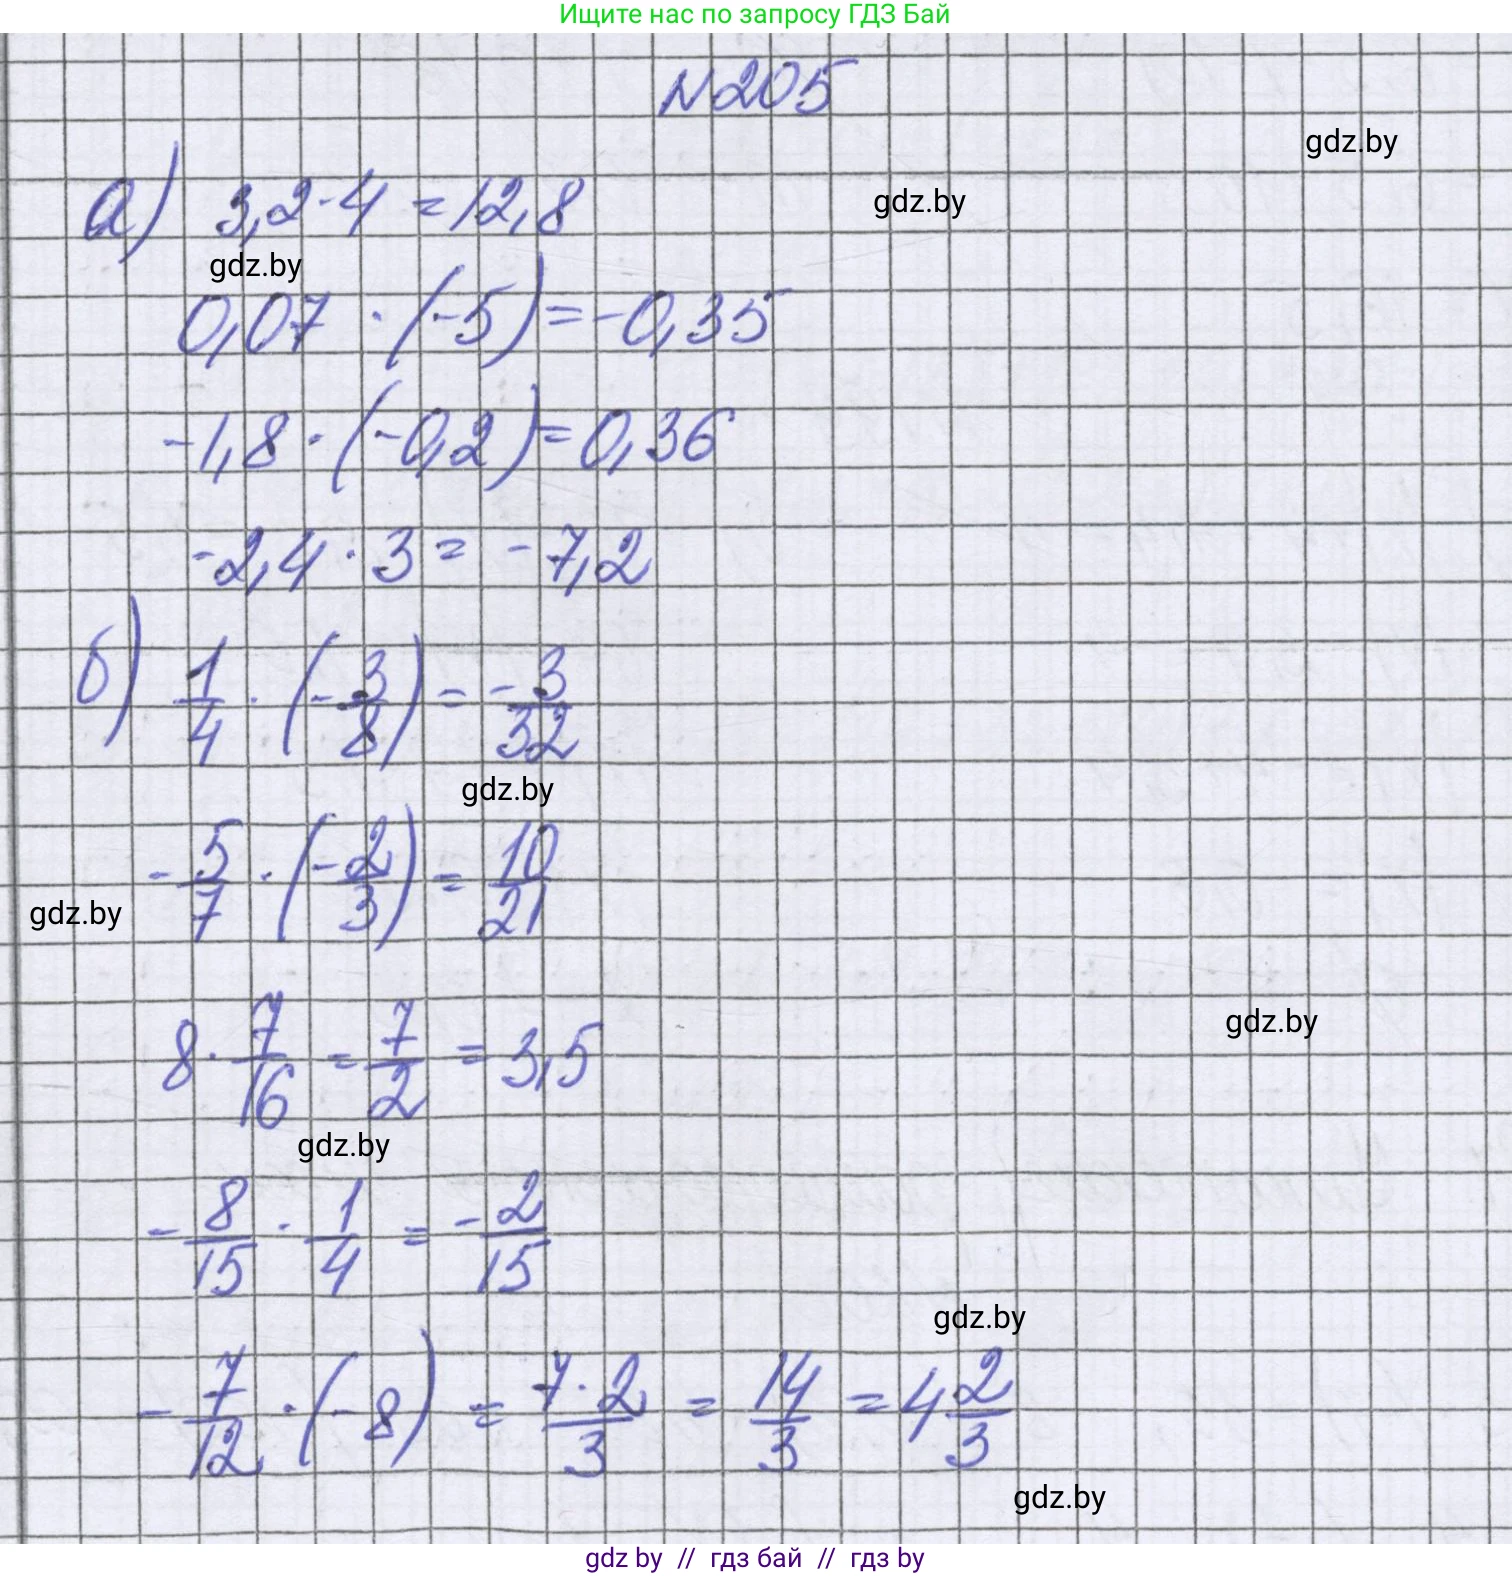 Ищите нас по запросу ГДЗ Бай
№205
gdz.by
а) 3,2·4 = 12,8
gdz.by
gdz.by
0,07 · (-5) = -0,35
-1,8 · (-0,2) = 0,36
-2,4 · 3 = -7,2
б) 1/4 · (-3/8) = -3/32
gdz.by
-5/7 · (-2/3) = 10/21
gdz.by
8 · 7/16 = 7/2 = 3,5
gdz.by
gdz.by
-8/15 · 1/4 = -2/15
gdz.by
-7/12 · (-8) = 7·2/3 = 14/3 = 4 2/3
gdz.by
gdz by // гдз бай // гдз by